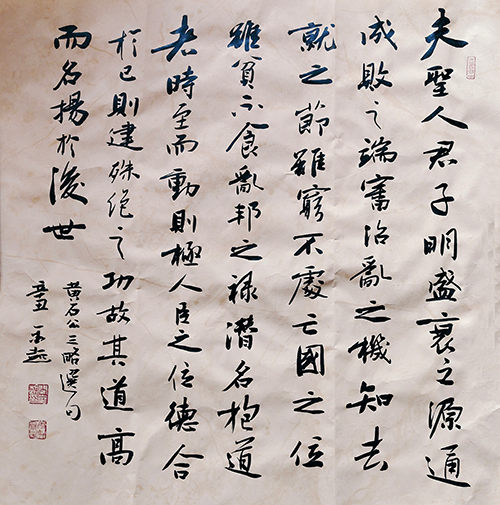 夫聖人君子明盛衰之源通
成敗之端審治亂之機知去
就之節雖窮不處亡國之位
雖貧不食亂邦之禄潛名抱道
者時至而動則極人臣之位德合
於已則建殊绝之功故其道高
而名揚於後世
黄石公三略選句